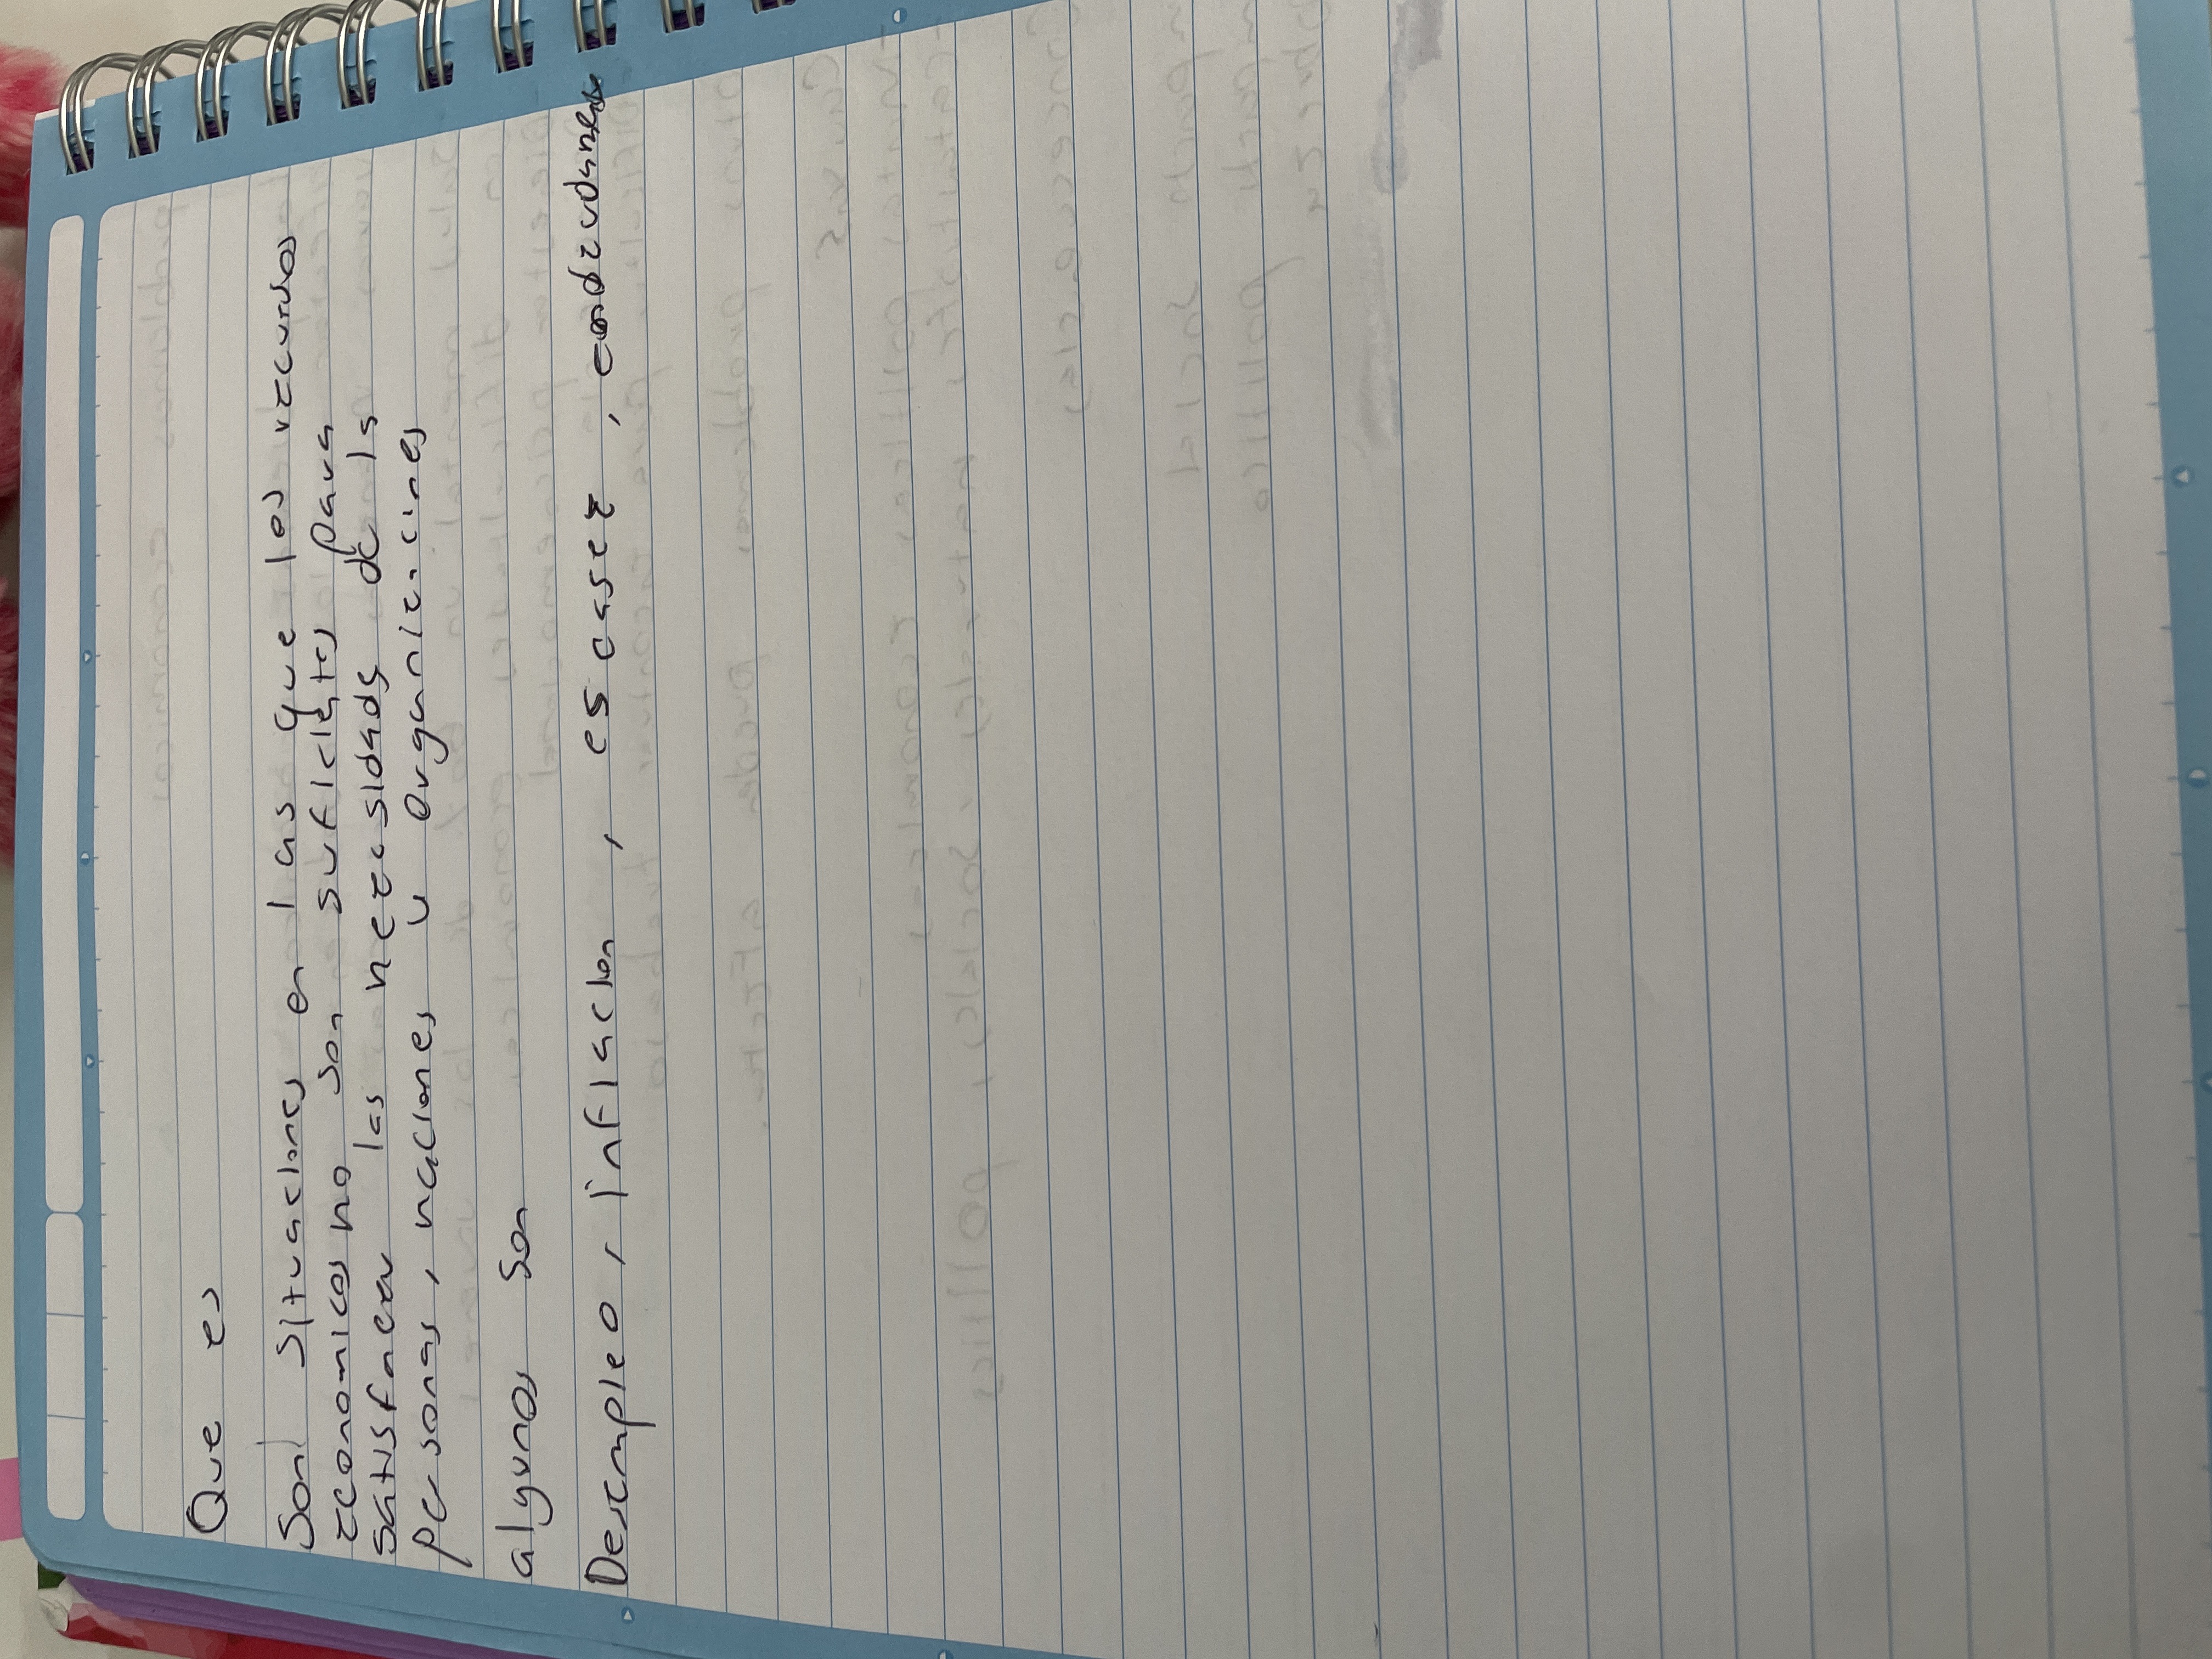 Que es
Son situaciones en las que los recursos
economicos no son suficientes para
satisfacer las necesidads de ls
personas, naciones u organizaciones
algunos son
Desempleo, inflacion, escasez,